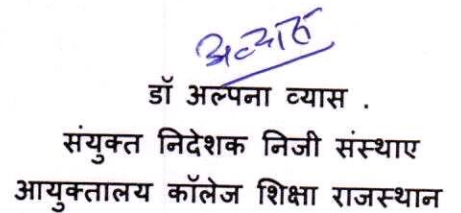 डॉ अल्पना व्यास .
संयुक्त निदेशक निजी संस्थाए
आयुक्तालय कॉलेज शिक्षा राजस्थान